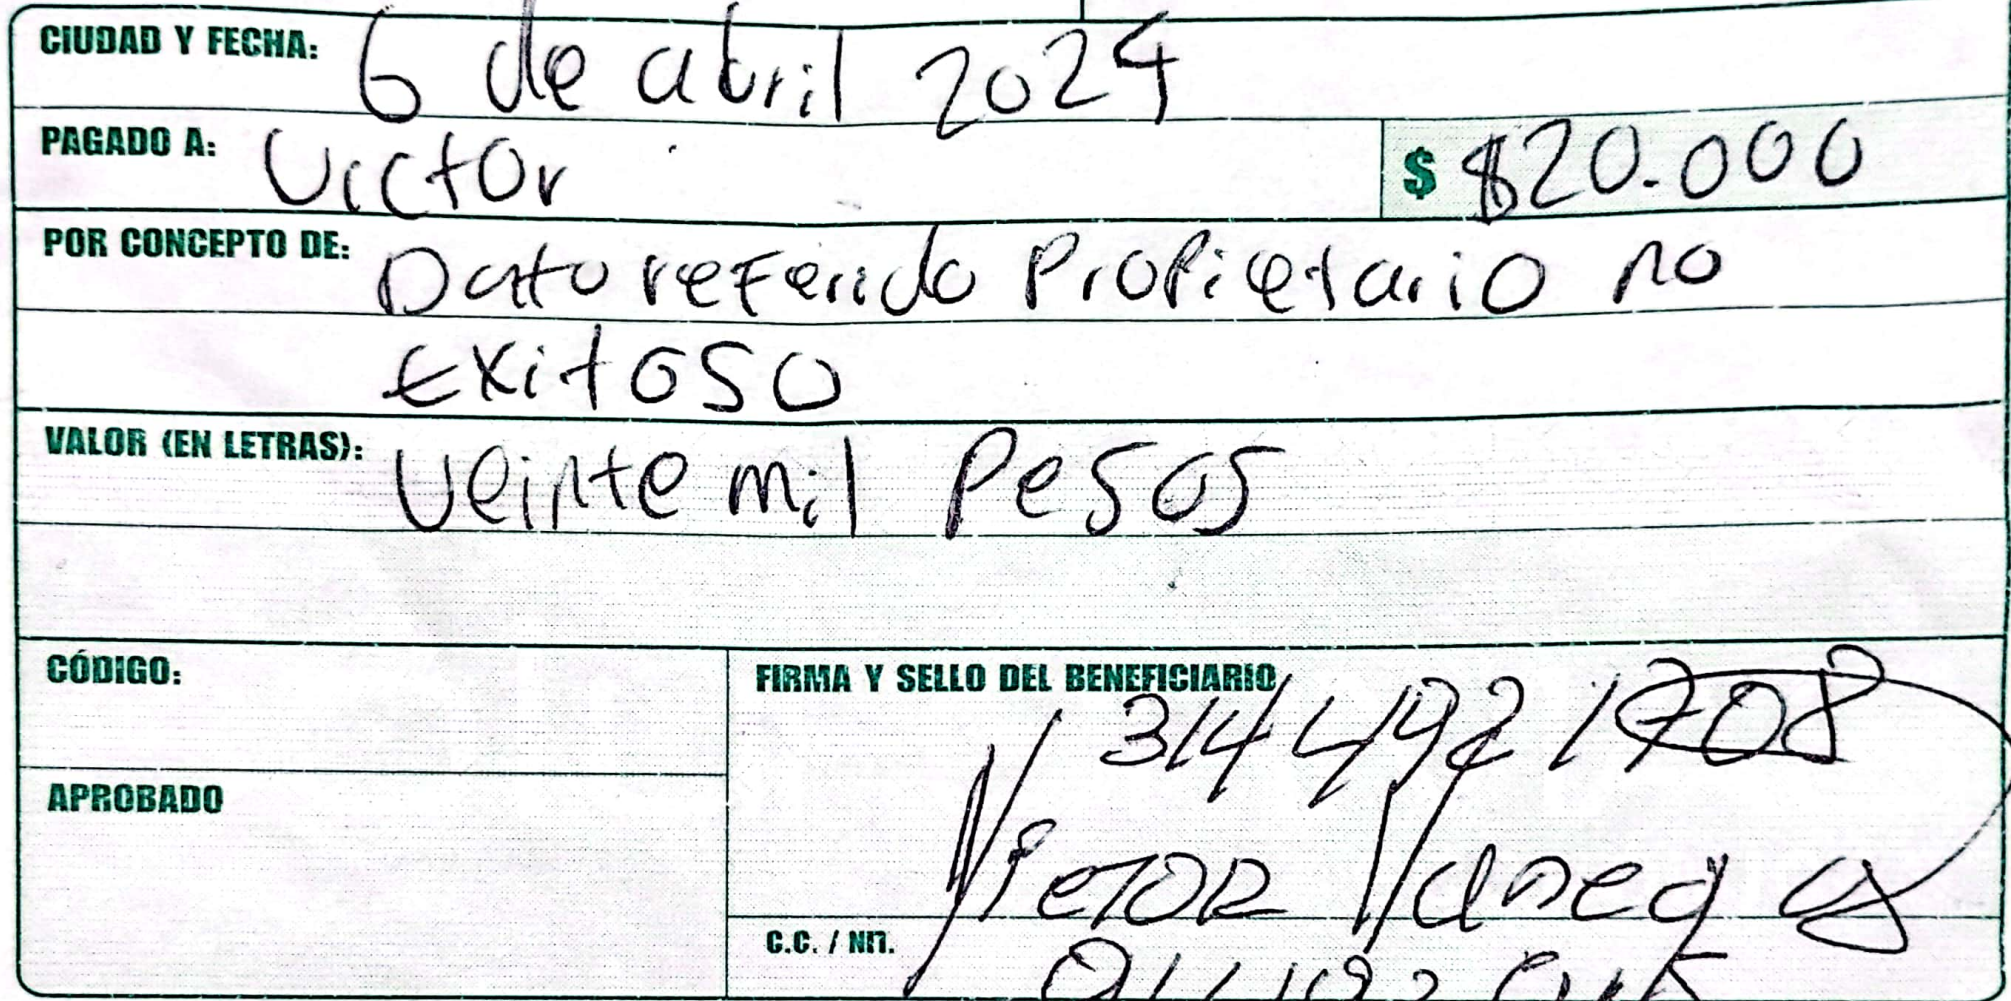 CIUDAD Y FECHA: 6 de abril 2024
PAGADO A: Victor $ $20.000
POR CONCEPTO DE: Dato referido Propietario no
Exitoso
VALOR (EN LETRAS): Veinte mil Pesos
CÓDIGO:
FIRMA Y SELLO DEL BENEFICIARIO
314 492 1708
APROBADO
Victor Vanegas
C.C. / NIT.